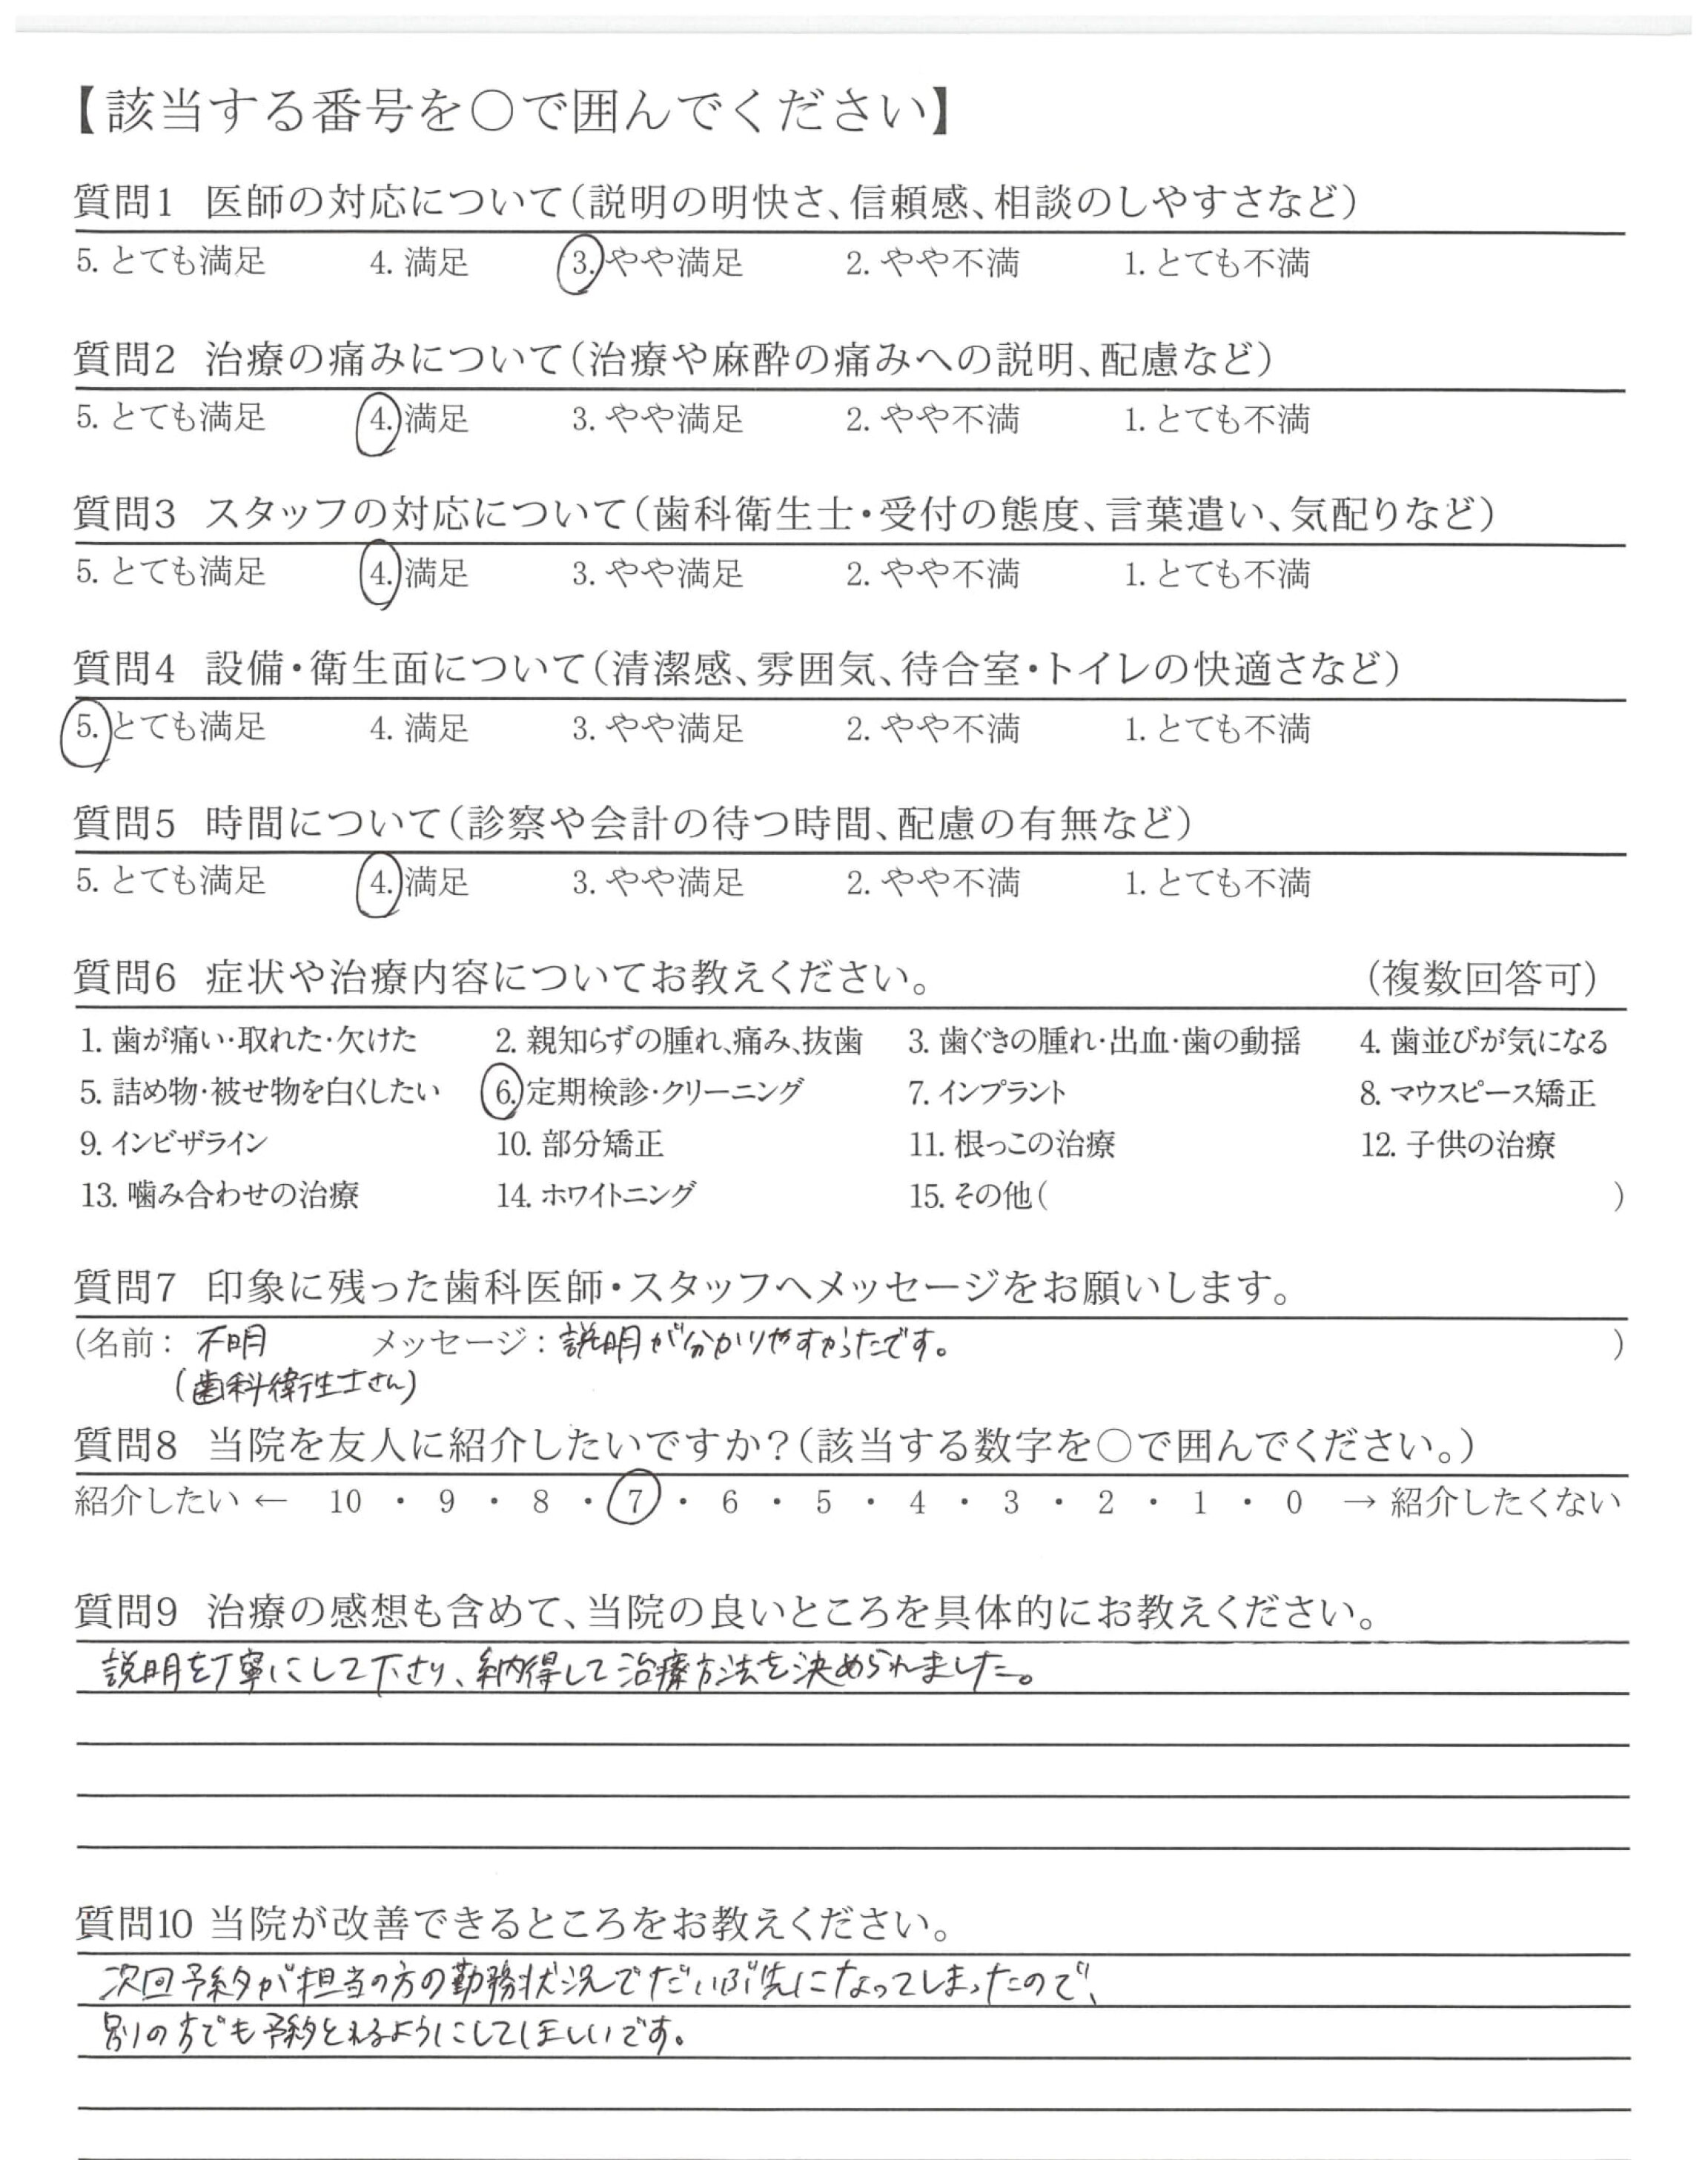 【該当する番号を○で囲んでください】
質問1 医師の対応について(説明の明快さ、信頼感、相談のしやすさなど)
5. とても満足 4. 満足 3. やや満足 2. やや不満 1. とても不満
質問2 治療の痛みについて(治療や麻酔の痛みへの説明、配慮など)
5. とても満足 4. 満足 3. やや満足 2. やや不満 1. とても不満
質問3 スタッフの対応について(歯科衛生士・受付の態度、言葉遣い、気配りなど)
5. とても満足 4. 満足 3. やや満足 2. やや不満 1. とても不満
質問4 設備・衛生面について(清潔感、雰囲気、待合室・トイレの快適さなど)
5. とても満足 4. 満足 3. やや満足 2. やや不満 1. とても不満
質問5 時間について(診察や会計の待つ時間、配慮の有無など)
5. とても満足 4. 満足 3. やや満足 2. やや不満 1. とても不満
質問6 症状や治療内容についてお教えください。 (複数回答可)
1. 歯が痛い・取れた・欠けた 2. 親知らずの腫れ、痛み、抜歯 3. 歯ぐきの腫れ・出血・歯の動揺 4. 歯並びが気になる
5. 詰め物・被せ物を白くしたい 6. 定期検診・クリーニング 7. インプラント 8. マウスピース矯正
9. インビザライン 10. 部分矯正 11. 根っこの治療 12. 子供の治療
13. 噛み合わせの治療 14. ホワイトニング 15. その他( )
質問7 印象に残った歯科医師・スタッフへメッセージをお願いします。
(名前: 不明 メッセージ: 説明が分かりやすかったです。 )
(歯科衛生士さん)
質問8 当院を友人に紹介したいですか?(該当する数字を○で囲んでください。)
紹介したい ← 10 ・ 9 ・ 8 ・ 7 ・ 6 ・ 5 ・ 4 ・ 3 ・ 2 ・ 1 ・ 0 → 紹介したくない
質問9 治療の感想も含めて、当院の良いところを具体的にお教えください。
説明を丁寧にして下さり、納得して治療方法を決められました。
質問10 当院が改善できるところをお教えください。
次回予約が担当の方の勤務状況でだいぶ先になってしまったので、
別の方でも予約とれるようにしてほしいです。